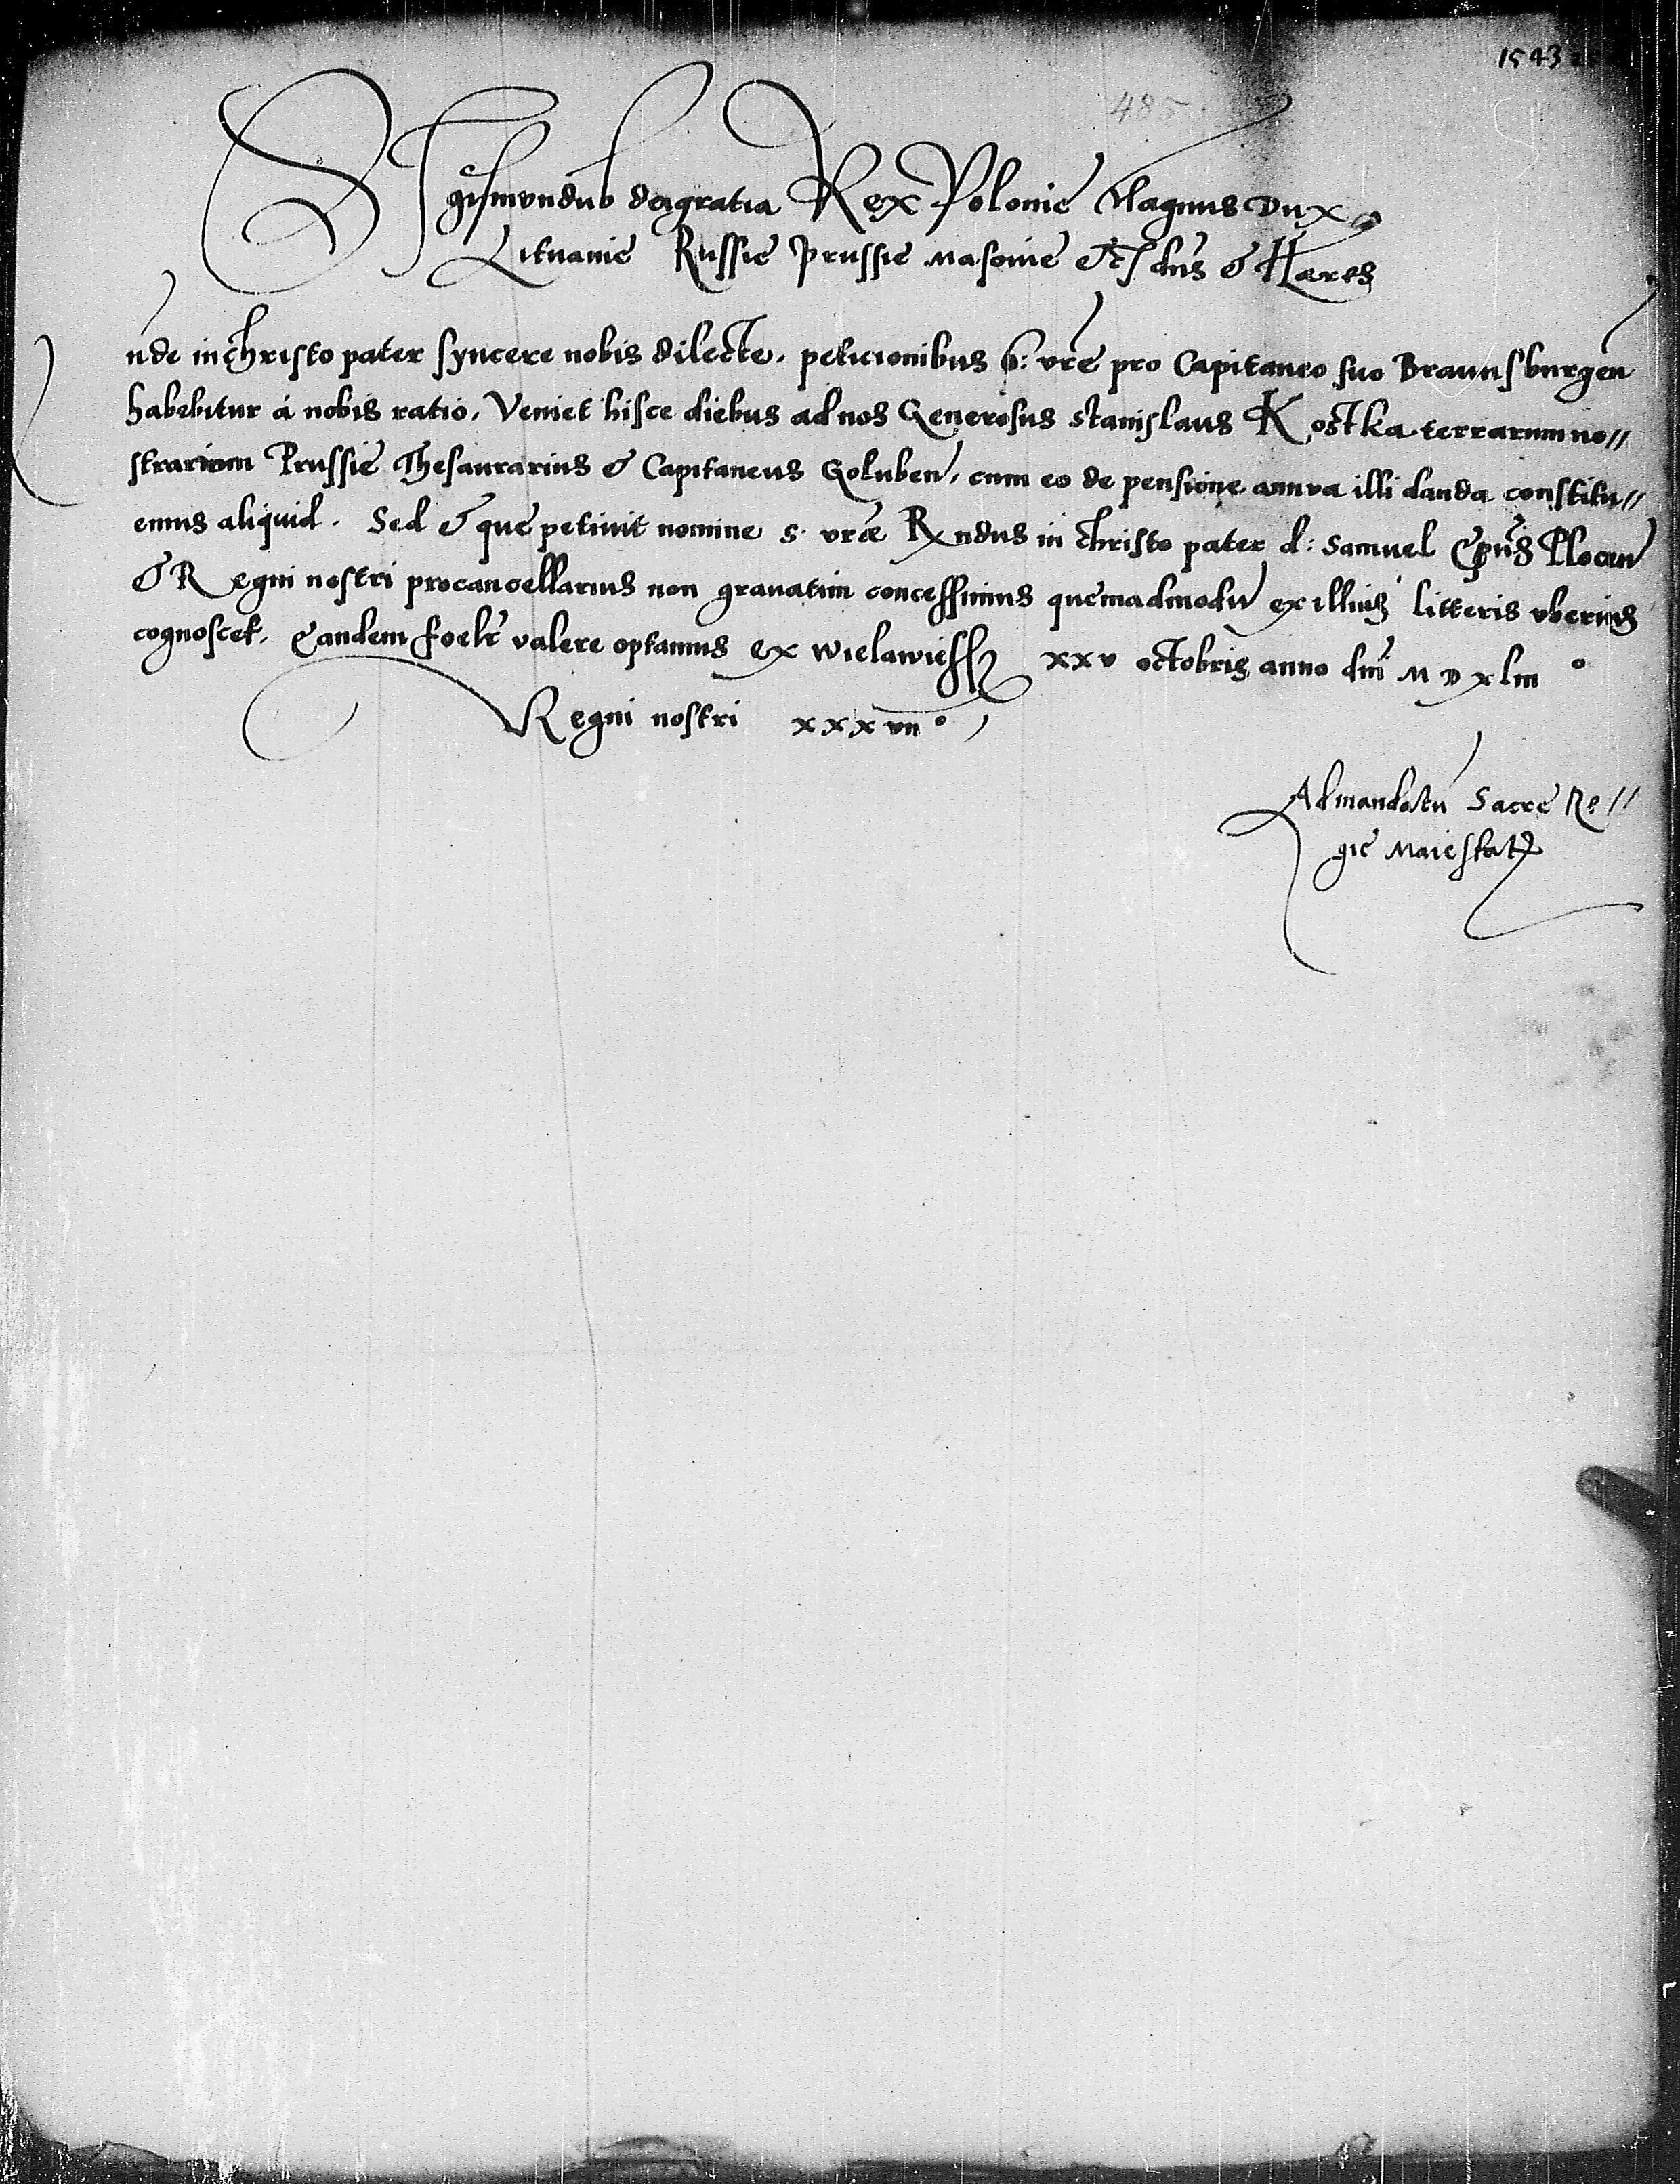 1543
485
Sigismundus dei gratia Rex Polonie Magnus Dux
Lituanie Russie Prussie Masovie etc dns & Hæres
nde in Christo pater syncere nobis dilecte. peticionibus S: vre pro Capitaneo suo Braunsburgen
habebitur á nobis ratio. Veniet hisce diebus ad nos Generosus Stanislaus Kostka terrarum no//
strarum Prussie Thesaurarius & Capitaneus Goluben, cum eo de pensione annua illi danda constitu//
emus aliquid. Sed & que petiuit nomine S. vræ Rndus in Christo pater d: Samuel Epus Plocen
& Regni nostri procancellarius non grauatim concessimus quemadmodu ex illius litteris vberius
cognoscet. Eandem foelr valere optamus Ex Wielawiess xxv octobris anno dni MDxliii°
Regni nostri xxxvii°
Ad mandatu Sacre Re//
gie Maiestatis